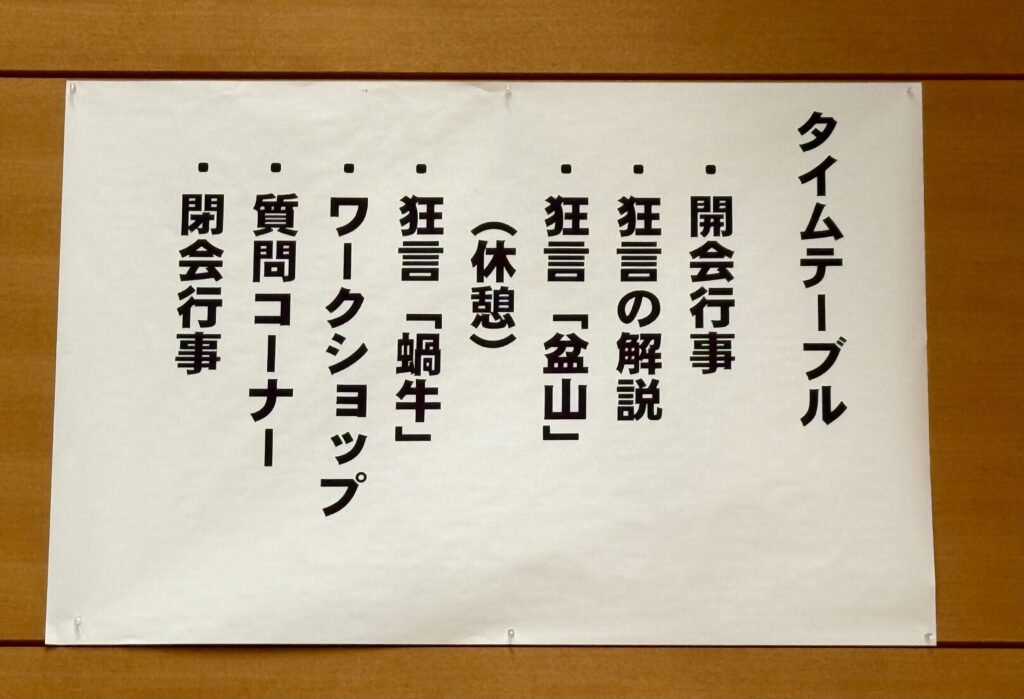 タイムテーブル
・開会行事
・狂言の解説
・狂言「盆山」
（休憩）
・狂言「蝸牛」
・ワークショップ
・質問コーナー
・閉会行事